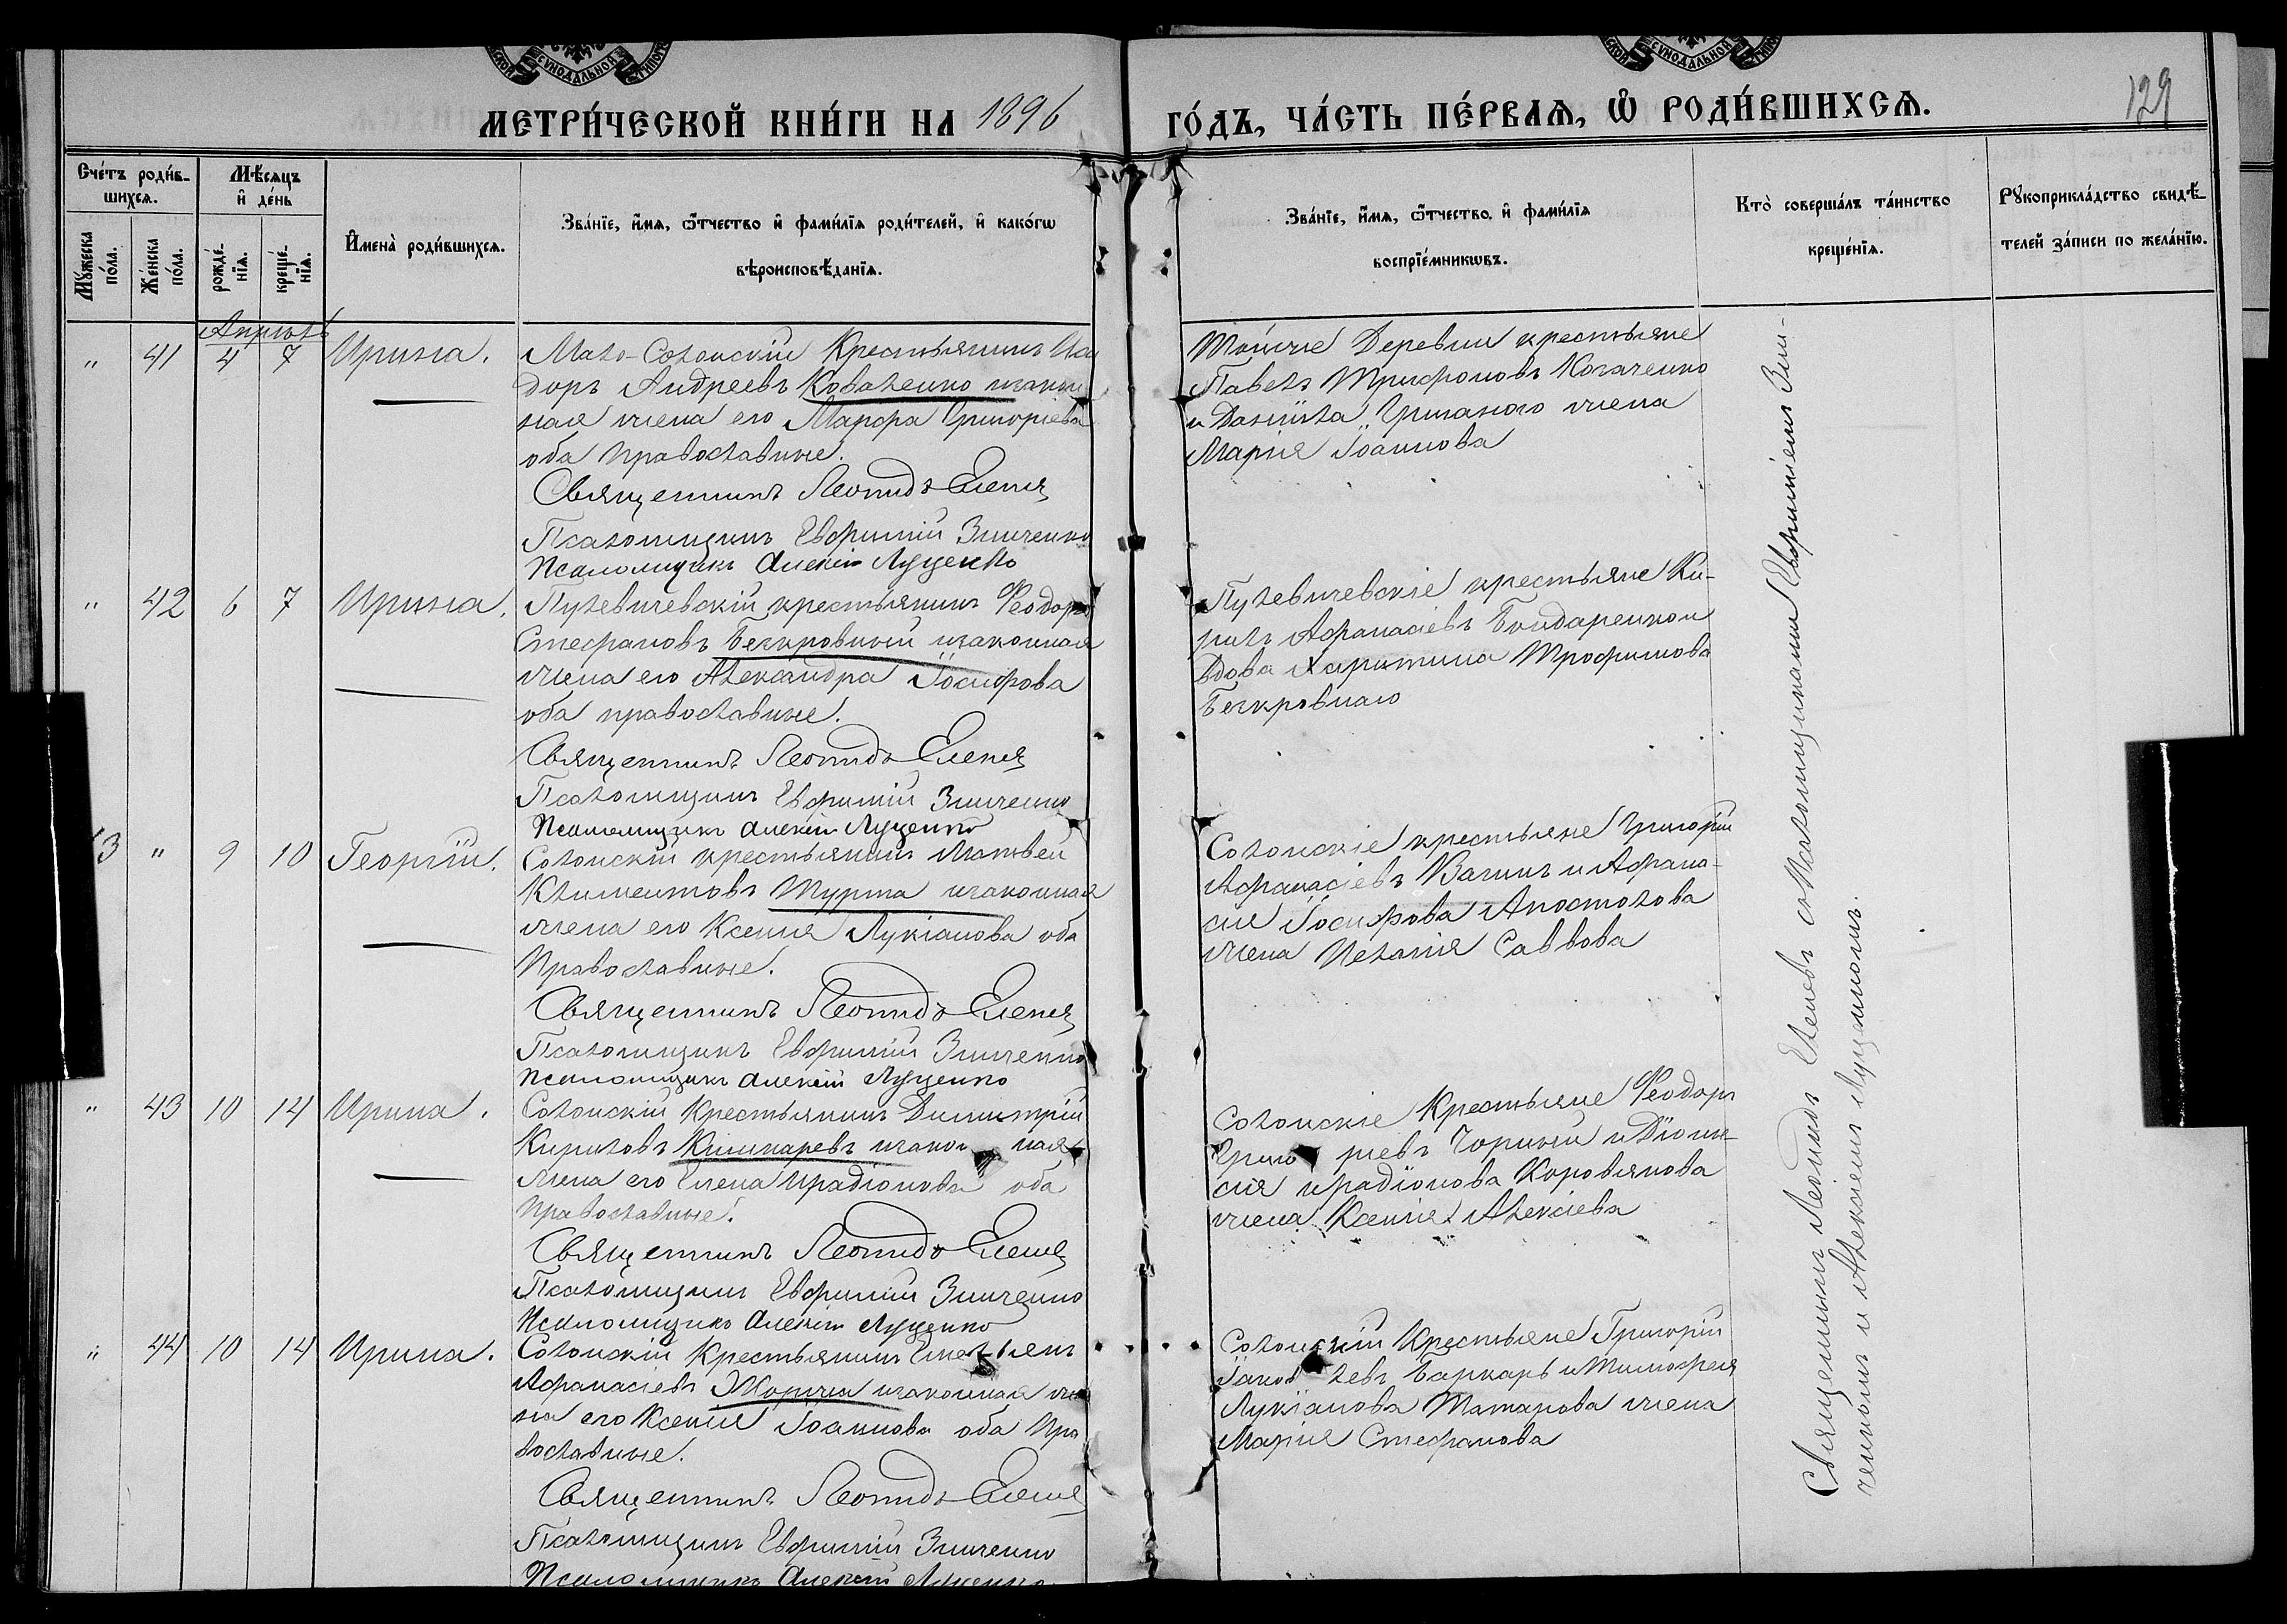 МЕТРИ́ЧЕСКОЙ КНИ́ГИ НА 1896 ГО́ДЪ, ЧА́СТЬ ПЕ́РВАѦ, Ѽ РОДИ́ВШИХСѦ.
129
Сче́тъ роди́в-
шихсѧ.
Мѣ́сѧцъ
и҆ де́нь
Мꙋ́жеска по́ла.
Же́нска по́ла.
рожде́-
нїѧ.
креще́-
нїѧ.
И҆мена̀ роди́вшихсѧ.
Зва́нїе, и҆́мѧ, ѻ҆́тчество и҆ фами́лїѧ роди́телей, и҆ како́гѡ
вѣроисповѣ́данїѧ.
Зва́нїе, и҆́мѧ, ѻ҆́тчество, и҆ фами́лїѧ
воспрїе́мникѡвъ.
Кто̀ соверша́лъ та́инство
креще́нїѧ.
Рꙋкоприкла́дство свидѣ́-
телей за́писи по жела́нїю.
Апрѣль
" 41 4 7 Ирина.
Мало-Солонскій Крестьянинъ Иси
доръ Андреевъ Коваленко изакон
ная жена его Марфа Григоріева
оба православные.
Священникъ Леонидъ Еленев
Псаломщикъ Евфимій Зинченко
Псаломщикъ Алексій Луценко
Тойже Деревни крестьяне
Павелъ Трифоновъ Козаченко
и Даніила Гришаного жена
Марія Іоаннова
" 42 6 7 Ирина.
Пулевичевскій крестьянинъ Феодоръ
Стефановъ Безкровный изаконная
жена его Александра Іосифова
оба православные.
Священникъ Леонидъ Еленев
Псаломщикъ Евфимій Зинченко
Псаломщикъ Алексій Луценко
Пулевичевскіе крестьяне Ки-
рилъ Афанасіевъ Бондаренкои
вдова Харитина Трофимова
Безкровнаго
13 " 9 10 Георгій.
Солонскій крестьянинъ Матвей
Климентовъ Турта изаконная
жена его Ксенія Лукіанова оба
Православные.
Священникъ Леонидъ Еленев
Псаломщикъ Евфимій Зинченко
Псаломщикъ Алексій Луценко
Солонскіе крестьяне Григорій
Афанасіевъ Вагинъ и Афана-
сія Іосифова Апостолова
жена Пелагія Саввова
" 43 10 14 Ирина.
Солонскій Крестьянинъ Димитрій
Кириловъ Кишкаревъ изакон ная
жена его Елена Ирадіонова оба
Православные.
Священникъ Леонидъ Еленев
Псаломщикъ Евфимій Зинченко
Псаломщикъ Алексій Луценко
Солонскіе Крестьяне Феодоръ
Григо ріевъ Чорный и Діони-
сія Ирадіонова Коровянова
жена Ксенія Алексіева
" 44 10 14 Ирина.
Солонскій Крестьянинъ Емельянъ
Афанасіевъ Жоржа изаконная же
на его Ксенія Іоаннова оба Пра
вославные.
Священникъ Леонидъ Еленев
Псаломщикъ Евфимій Зинченко
Псаломщикъ Алексій Луценко
Солонскій Крестьяне Григорій
Іаков левъ Баркарь и Тимофея
Лукіанова Татарова жена
Марія Стефанова
Священникъ Леонидъ Еленевъ съ Псаломщиками Евфиміемъ Зин-
ченкомъ и Алексіемъ Луценкомъ.